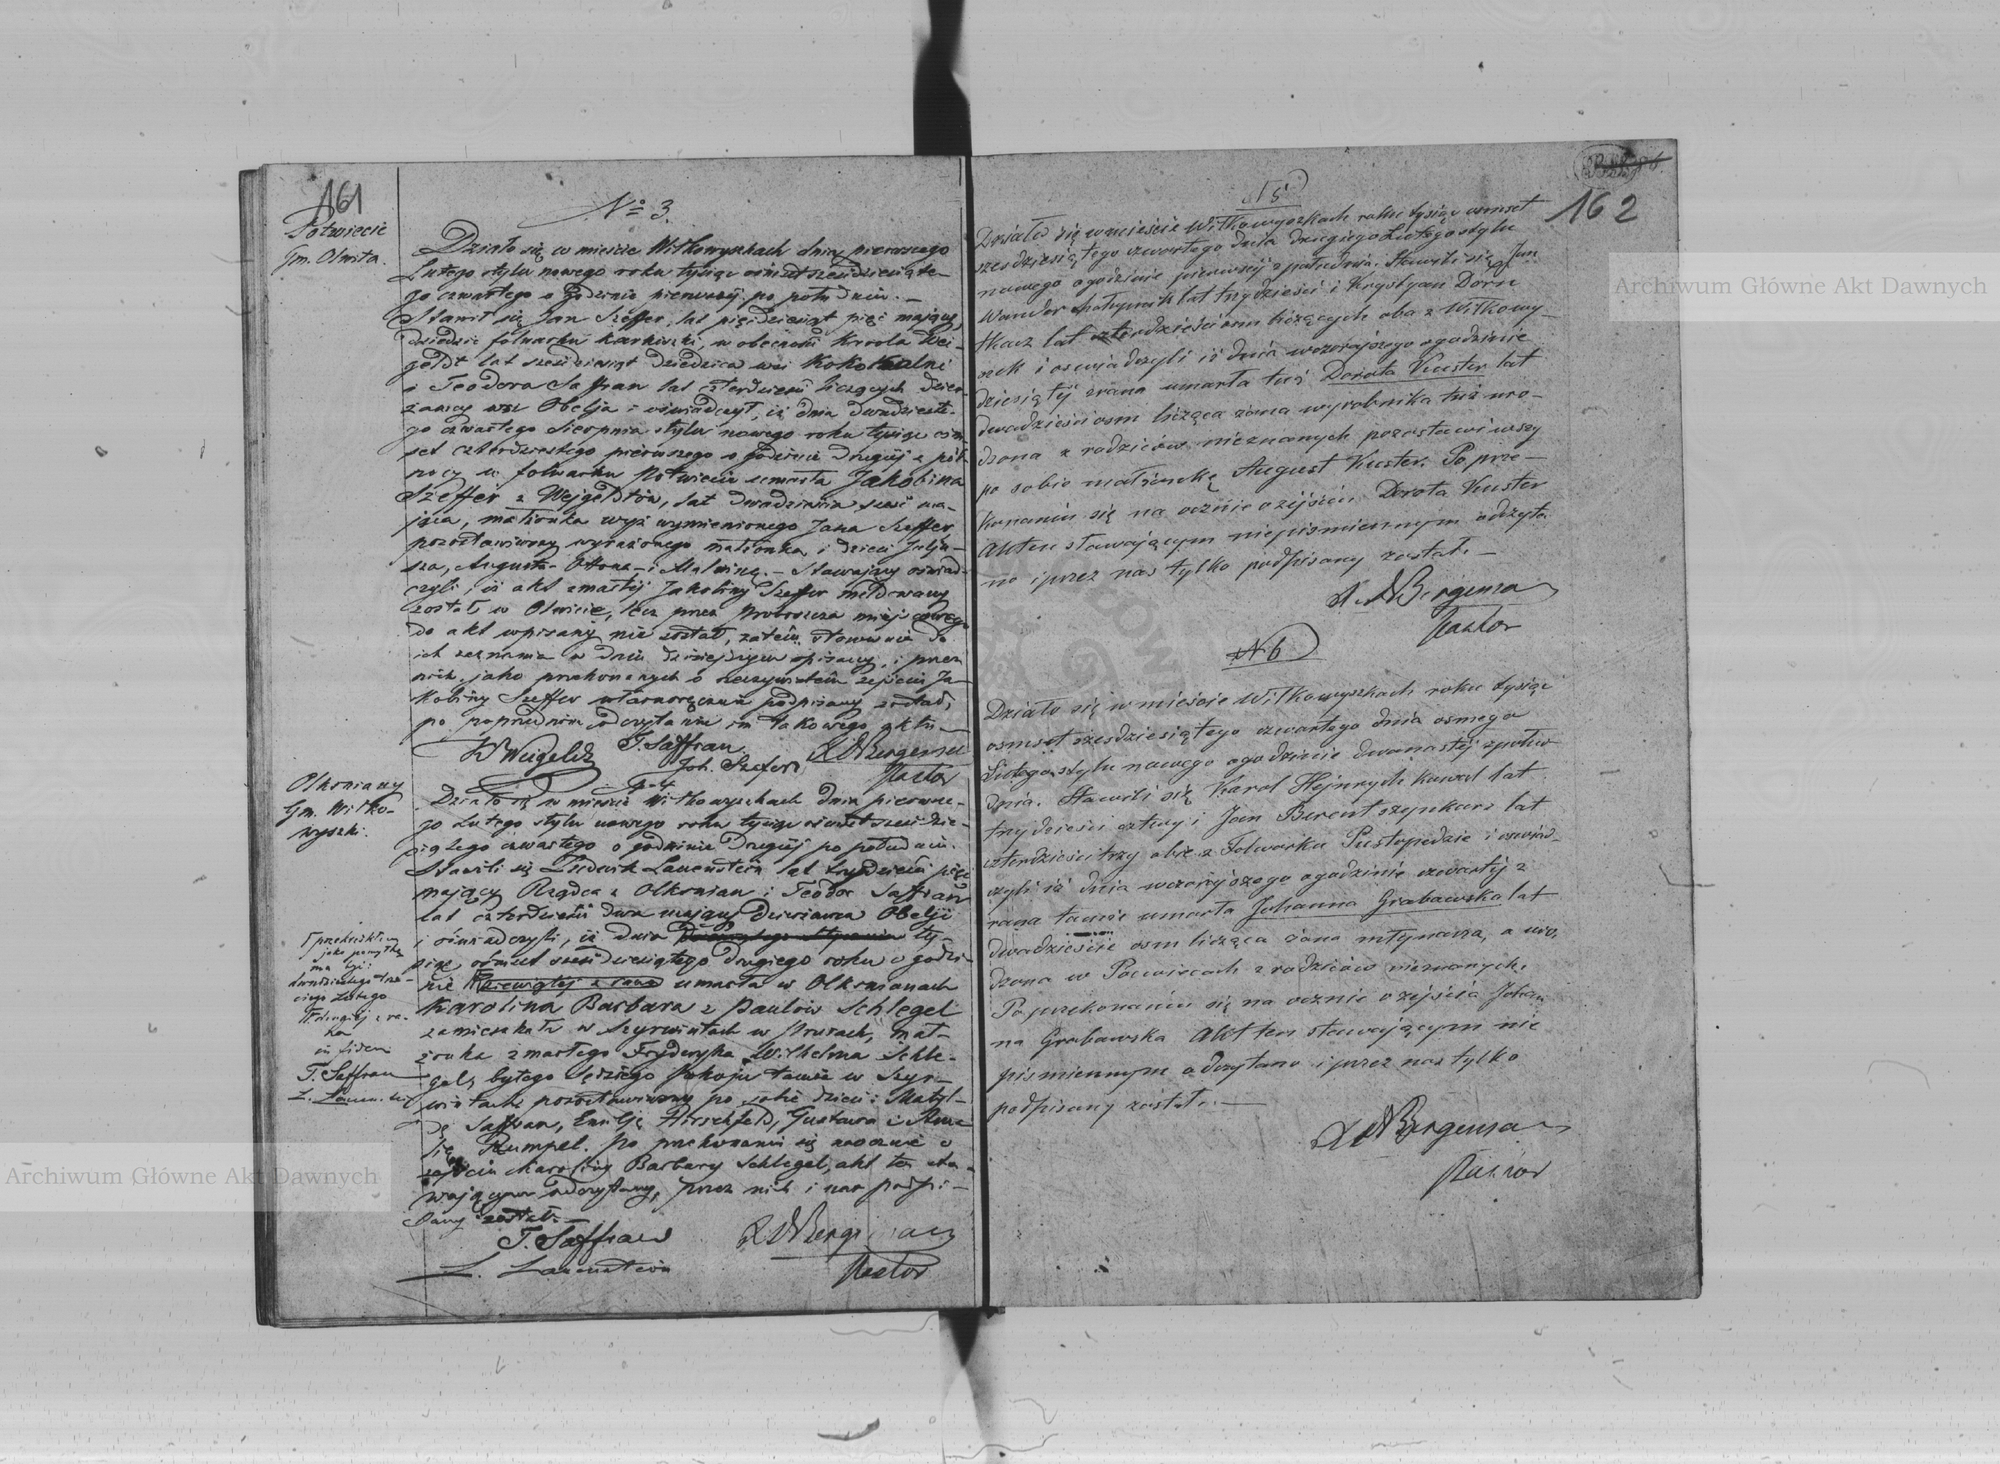 161
Potwiecie
Gm. Olwita.
No 3.
Działo się w mieście Wiłkowyszkach dnia pierwszego
Lutego stylu nowego roku tysiąc ośmset sześćdziesiąte-
go czwartego o godzinie pierwszej po południu. —
Stawił się Jan Szeffer, lat pięćdziesiąt pięć mający,
dziedzic folwarku Karkliszki, w obecności Karola Wei-
geldt lat sześćdziesiąt dziedzica wsi
i Teodora Saffran lat czterdzieści liczących dzier-
żawcy wsi Obelja i oświadczył, iż dnia dwudzieste-
go czwartego Sierpnia stylu nowego roku tysiąc ośm-
set czterdziestego pierwszego o godzinie drugiej z pół-
nocy w folwarku Potwiecie umarła Jakobina
Szeffer z Wejgeldtów, lat dwadzieścia sześć ma-
jąca, małżonka wyż wymienionego Jana Szeffer
pozostawiwszy wyrażonego małżonka i dzieci Julju-
sza, Augusta Ottona i Malwinę. — Stawający oświad-
czyli, iż akt zmarłej Jakobiny Szeffer meldowany
został w Olwicie, lecz przez Proboszcza miejscowego
do akt wpisany nie został, zatem stosownie do
ich zeznania w dniu dzisiejszym spisany, i przez
nich, jako przekonanych o rzeczywistem zejściu Ja-
kobiny Szeffer własnoręcznie podpisany został,
po poprzedniem odczytaniu im takowego aktu —
T. Saffran
Joh. Szefer
Pastor
Olkoniany
Gm. Wiłko-
wyszki.
Działo się w mieście Wiłkowyszkach dnia pierwsze-
go Lutego stylu nowego roku tysiąc ośmset sześćdzie-
siątego czwartego o godzinie drugiej po południu.
Stawili się Ludwik Lauenstein lat trzydzieści pięć
mający Rządca z Olkonian i Teodor Saffran
lat czterdzieści dwa mający dzierżawca Obelji
i oświadczyli, iż dnia ty-
siąc ośmset sześćdziesiątego drugiego roku o godzi-
nie dziewiątej z rana umarła w Olkonianach
Karolina Barbara z Paulów Schlegel
zamieszkała w Szyrwintach w Prusach, mał-
żonka zmarłego Fryderyka Wilhelma Schle-
gel, byłego Sędziego Pokoju tamże w Szyr-
wintach pozostawiwszy po sobie dzieci: Matyl-
dę Saffran, Emilję Hirschfeld, Gustawa i Ama-
lię Rumpel. Po przekonaniu się naocznie o
zejściu Karoliny Barbary Schlegel, akt ten sta-
wającym odczytany, przez nich i nas podpi-
sany został. —
T. Saffran
L. Lauenstein
Pastor
przekreślony
jako pomyłka
ma być:
dwudziestego trze-
ciego Lutego
drugiej z ra-
na
in fidem
T. Saffran
162
N 5
Działo się w mieście Wiłkowyszkach roku tysiąc ośmset
sześdziesiątego czwartego dnia drugiego Lutego stylu
nowego o godzinie pierwszej z południa. Stawili się Jan
Wander lat trzydzieści i Krystyan Dorn
tkacz lat czterdzieści osm liczących oba z Wiłkowy-
szek i oswiadczyli iż dnia wczorajszego o godzinie
dziesiątej zrana umarła tuż Dorota Kuster lat
dwadzieścia osm licząca żona wyrobnika tuż uro-
dzona z rodziców nieznanych pozostawiwszy
po sobie małżonka August Kuster. Po prze-
konaniu się na ocznie o zejściu Dorota Kuster
Akt ten stawającym niepismiennym odczyta-
no i przez nas tylko podpisany został. —
Pastor
N 6
Działo się w mieście Wiłkowyszkach roku tysiąc
osmset szesdziesiątego czwartego dnia osmego
Lutego stylu nowego o godzinie dwunastej z połu-
dnia. Stawili się Karol Hejnrych kowal lat
trzydzieści cztery i Jan Berent szynkarz lat
czterdzieści trzy obie z Folwarku Pustopedzie i oswiad-
czyli iż dnia wczorajszego o godzinie czwartej z
rana tamże umarła Johanna Grabawska lat
dwadzieście osm licząca żona młynarza, a uro-
dzona w z rodziców nieznanych.
Po przekonaniu się na ocznie o zejściu Johan-
na Grabawska Akt ten stawającym nie
pismiennym odczytano i przez nas tylko
podpisany został. —
Pastor
Archiwum Główne Akt Dawnych
Archiwum Główne Akt Dawnych